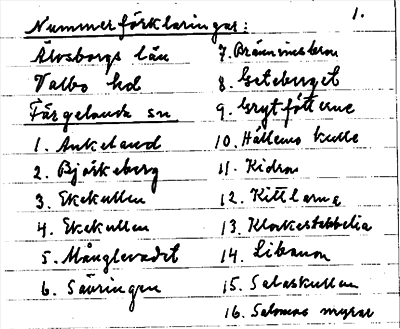 1.
Nummerförklaringar:
Älvsborgs län
Valbo hd
Färgelanda sn
1. Ankeland
2. Björkeberg
3. Ekekullen
4. Ekekullen
5. Månglevadet
6. Sävringen
7. Brännvinsbron
8. Geteberget
9. Grytfötterne
10. Hällems kulle
11. Kidron
12. Kittlarne
13. Klockestabbelia
14. Libanon
15. Salaskullen
16. Salomos myrar